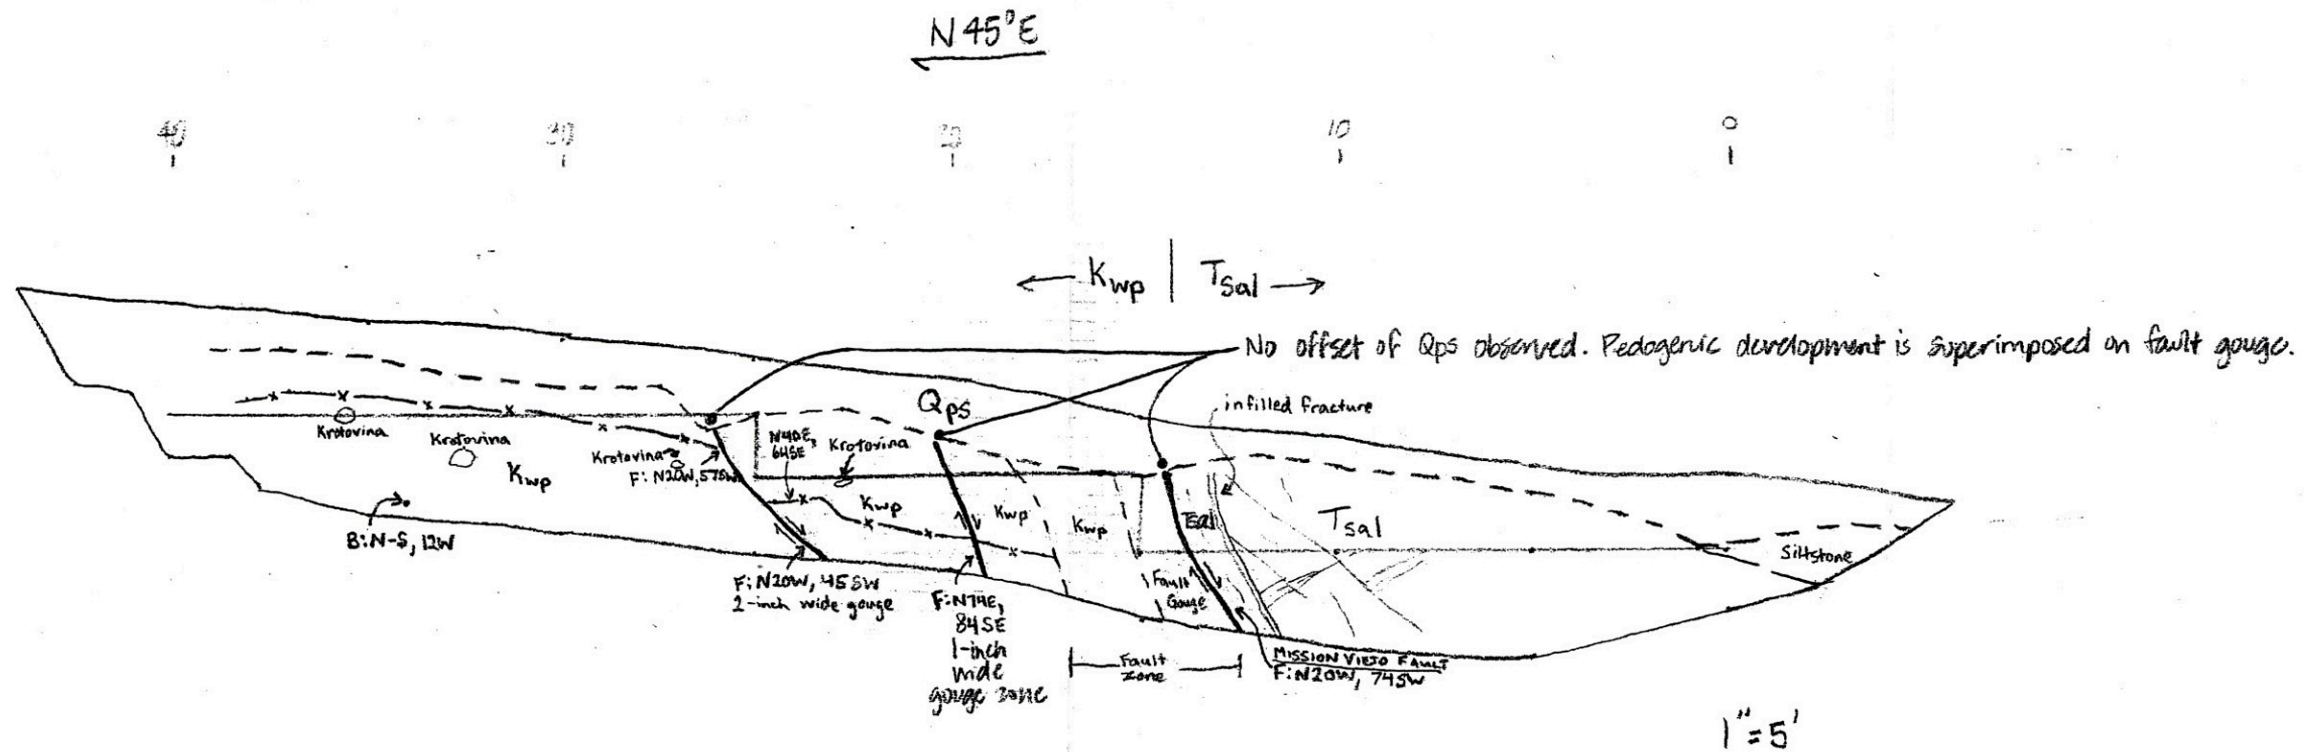 N45°E
40
30
20
10
0
← Kwp | Tsal →
No offset of Qps observed. Pedogenic development is superimposed on fault gouge.
Qps
infilled fracture
Krotovina
Krotovina
Krotovina
Krotovina
N40E,
64SE
F: N20W, 57SW
Kwp
Kwp
Kwp
Kwp
Tsal
Tsal
Siltstone
B: N-S, 12W
F: N20W, 45SW
2-inch wide gouge
F: N74E,
84SE
1-inch
wide
gouge zone
Fault
Gouge
Fault
zone
MISSION VIEJO FAULT
F: N20W, 74SW
1"=5'